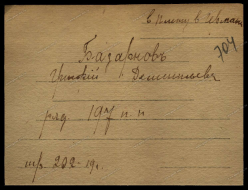 в плену в Герман
704
Базарновъ
Григорій Дементьевъ
ряд 197 п. п
шр. 202-19г.